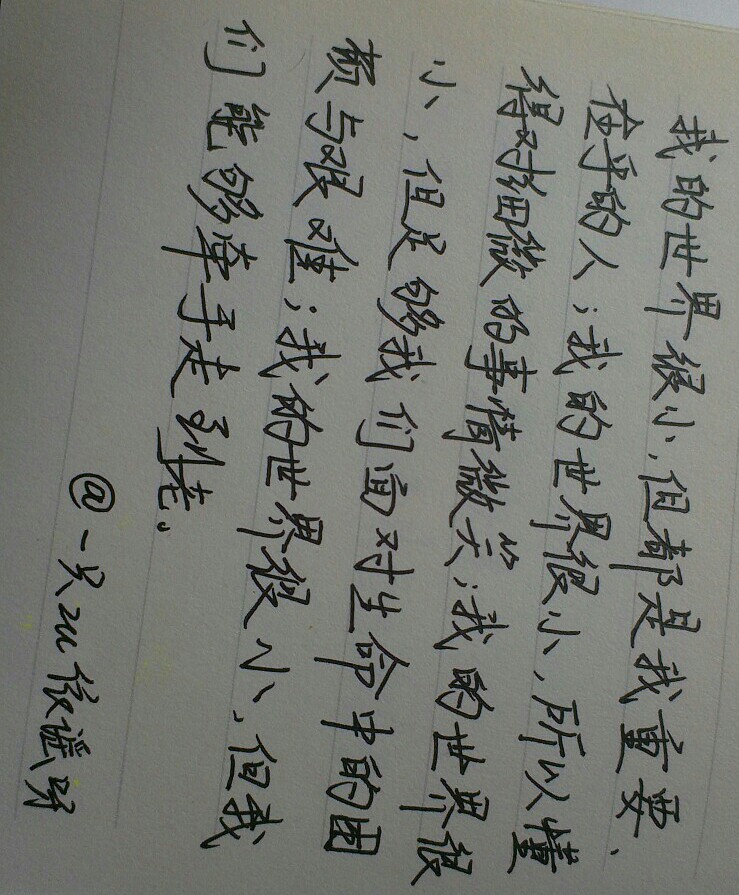 我的世界很小，但都是我重要、
在乎的人；我的世界很小，所以懂
得对细微的事情微笑；我的世界很
小，但足够我们面对生命中的困
顿与艰难；我的世界很小，但我
们能够牵手走到老。
@一只zu依谣